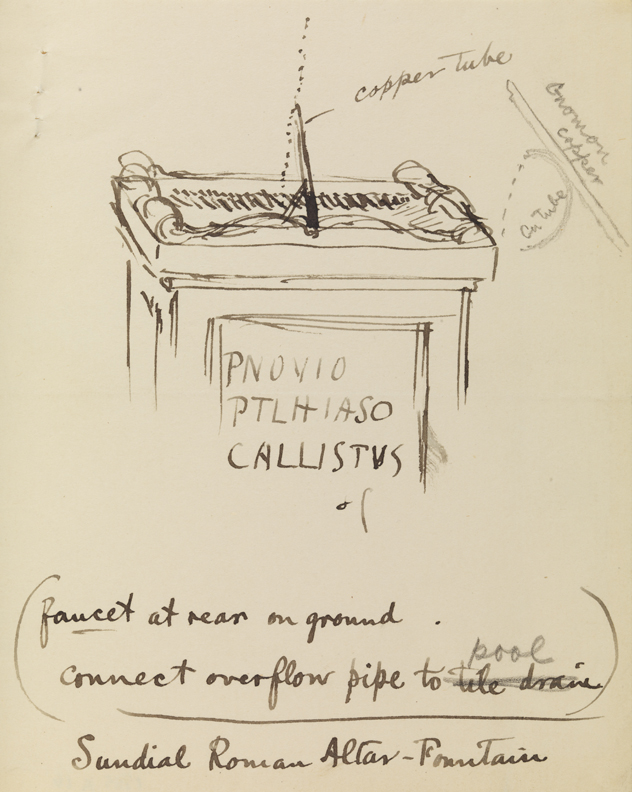 copper tube
Gnomon
copper
Cu tube
PNOVIO
PTLHIASO
CALLISTVS
(faucet at rear on ground .
connect overflow pipe to tile drain)
pool
Sundial Roman Altar-Fountain